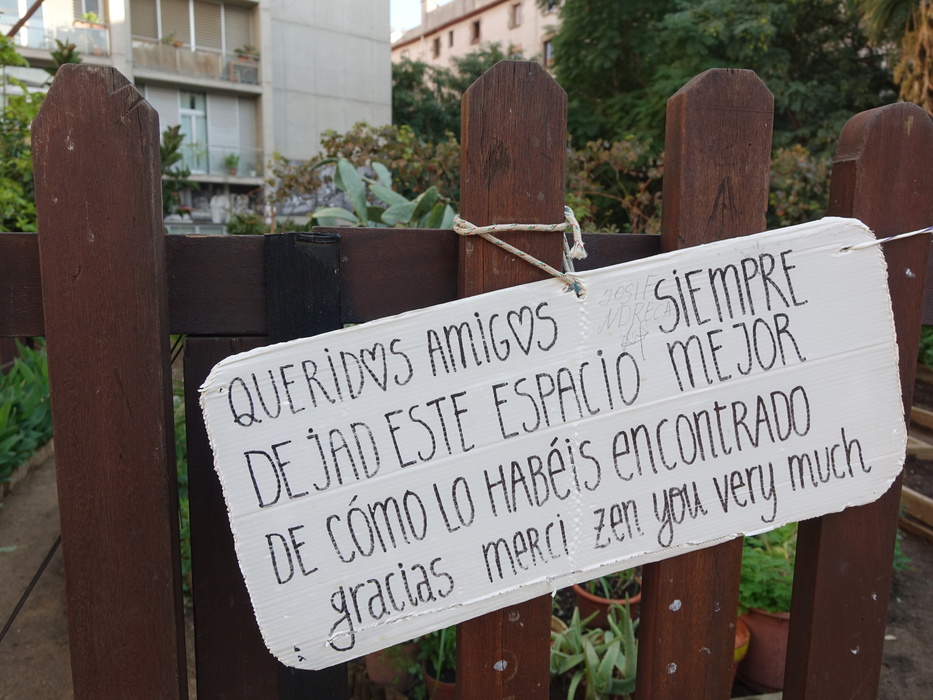 QUERIDOS AMIGOS SIEMPRE
DEJAD ESTE ESPACIO MEJOR
DE CÓMO LO HABÉIS ENCONTRADO
gracias merci zen you very much